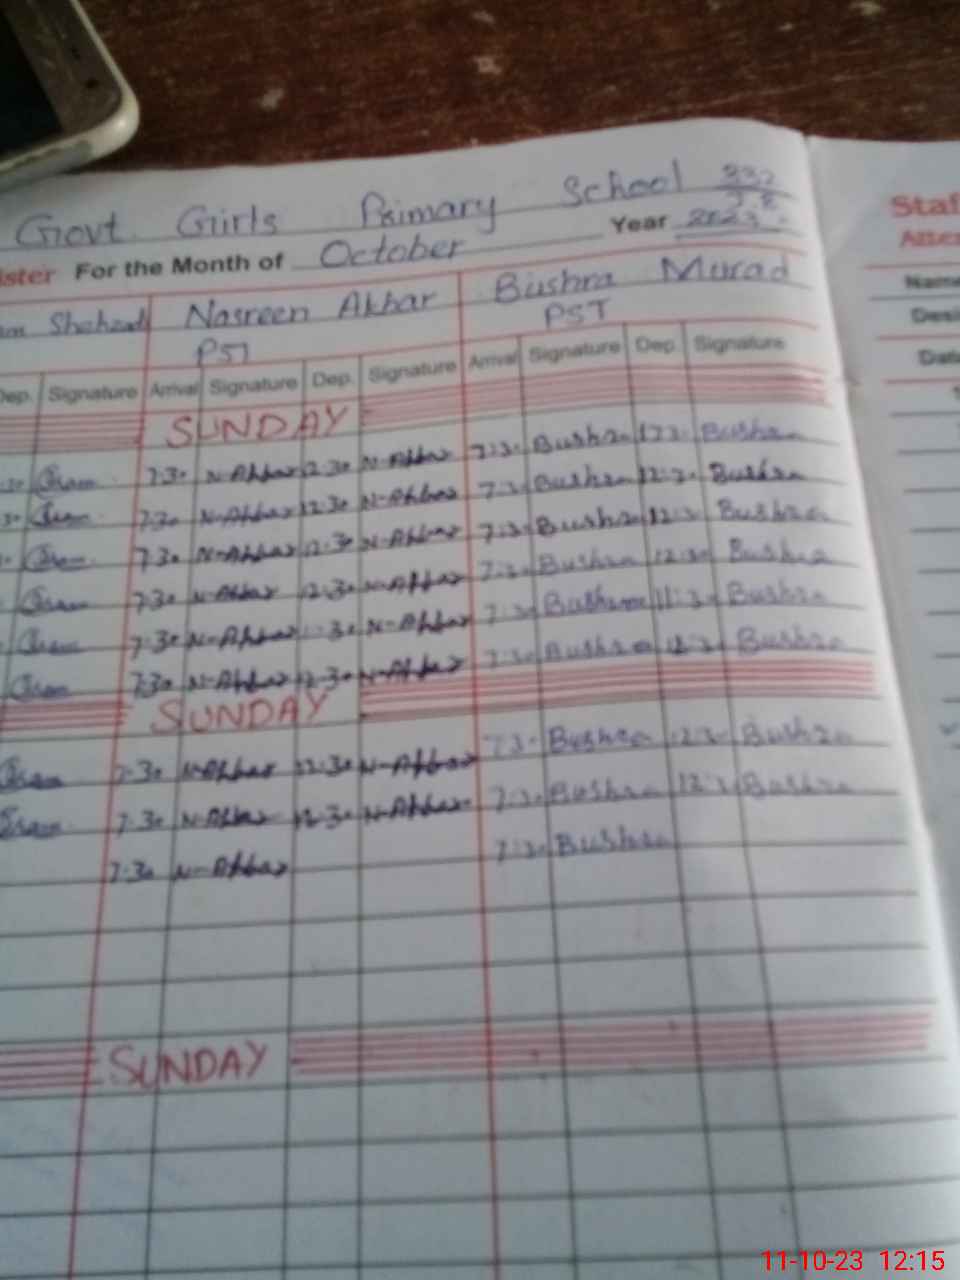 Govt Girls Primary School 932
Year 2023
ister For the Month of October
am Shahzad Nasreen Akhar Bushra Murad
PST PST
Dep. Signature Arrival Signature Dep. Signature Arrival Signature Dep. Signature
SUNDAY
7.30 N-Akhar 12.30 N-Akhar 7:3. Bushra 12.3. Bushra
7.30 N-Akhar 12.30 N-Akhar 7.3. Bushra 12.3. Bushra
7.30 N-Akhar 12.30 N-Akhar 7.3. Bushra 12.3. Bushra
7.30 N-Akhar 12.30 N-Akhar 7.3. Bushra 12.30 Bushra
7.30 N-Akhar N-Akhar 7.30 Bushra 11:30 Bushra
7.30 N-Akhar 12.30 N-Akhar 7.3. Bushra 12.3. Bushra
SUNDAY
7.30 N-Akhar 12.30 N-Akhar 7.3. Bushra 12.3. Bushra
7.30 N-Akhar 12.30 N-Akhar 7.3. Bushra 12.3 Bushra
7.30 N-Akhar 7.3. Bushra
SUNDAY
Staf
Atte
Name
Desi
Dat
11-10-23 12:15